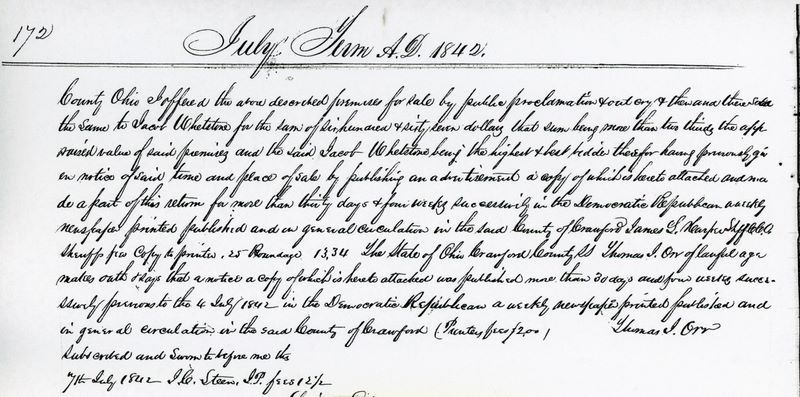 172
July Term A.D. 1842.
County Ohio I offered the above described premises for sale by public proclamation & out cry & then and there sold
the same to Jacob Whetstone for the sum of six hundred & sixty seven dollars that sum being more than two thirds the app
raised value of said premises and the said Jacob Whetstone being the highest & best bidder therefor having previously giv
en notice of said time and place of sale by publishing an advertisement a copy of which is hereto attached and ma
de a part of this return for more than thirty days & four weeks successively in the Democratic Republican a weekly
newspaper printed published and in general circulation in the said County of Crawford James S. Harper Shff C.C.O
Sheriffs fees Copy to printer .25 Poundage 13,34 The State of Ohio Crawford County SS Thomas J. Orr of lawful age
makes oath & says that a notice a copy of which is hereto attached was published more than 30 days and four weeks succes-
ssively previous to the 4 July 1842 in the Democratic Republican a weekly newspaper printed published and
in general circulation in the said County of Crawford (Printers fees $2,00) Thomas J. Orr
Subscribed and Sworn to before me this
7th July 1842 J.C. Steen, J.P. fees 12½